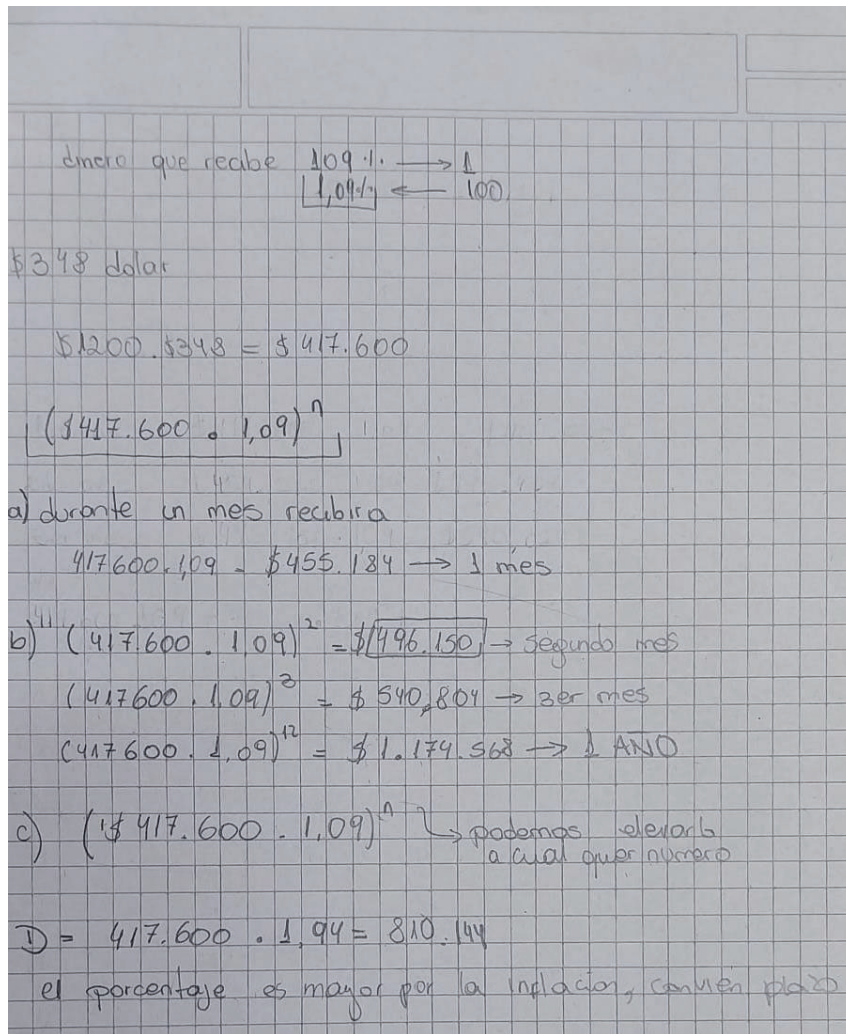 dinero que recibe 109 % → 1
1,09% ← 100
$348 dolar
$1200 . $348 = $417.600
($417.600 . 1,09)^n
a) durante un mes recibira
417600 . 1,09 = $455.184 → 1 mes
b) (417.600 . 1,09)^2 = $496.150 → segundo mes
(417600 . 1,09)^3 = $540,804 → 3er mes
(417600 . 1,09)^12 = $1.174.568 → 1 AÑO
c) ($417.600 . 1,09)^n ↳ podemos elevarlo
a cual quier numero
D = 417.600 . 1,94 = 810.144
el porcentaje es mayor por la inflacion, convien plazo